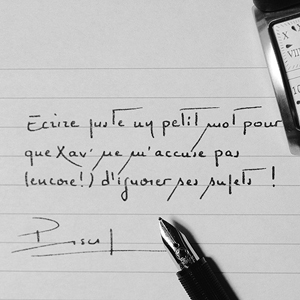 Ecrire juste un petit mot pour
que Xav' ne m'accuse pas
(encore!) d'ignorer ses sujets !